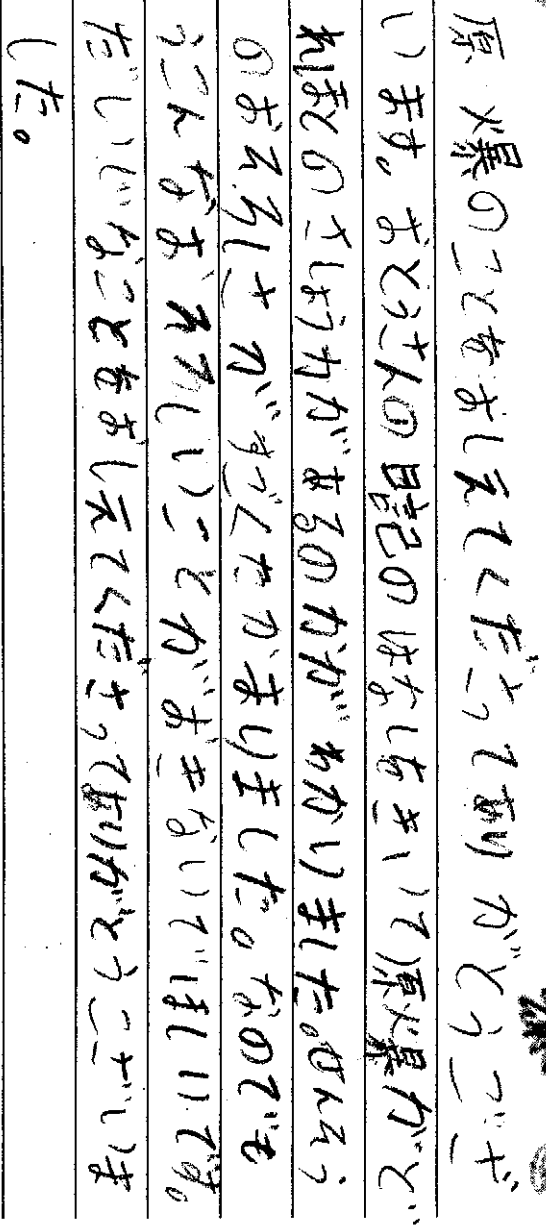 原爆のことをおしえてくださってありがとうござ
います。おとうさんの日記のはなしをきいて原爆がど
れほどのさしょうかがあるのかがわかりました。せんそう
のおそろしさがすごくたかまりました。なのでも
うこんなおそろしいことがおきないでほしいです。
だいじなことをおしえてくださってありがとうございま
した。